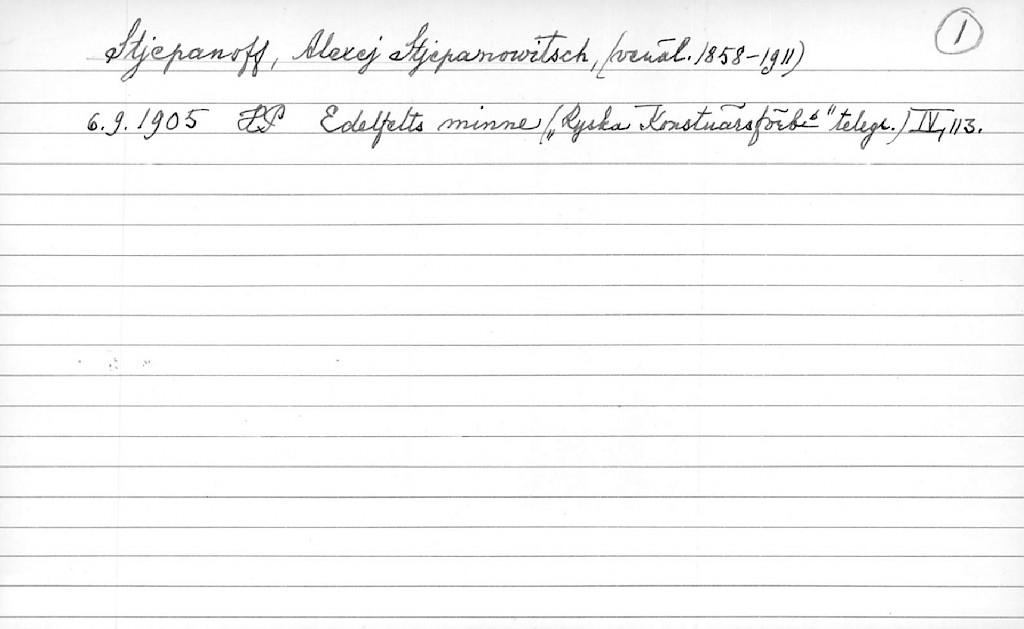 1
Stjepanoff, Alexej Stjepanowitsch, (venäl. 1858-1911)
6.9.1905 HP Edelfelts minne („Ryska Konstnärsförb:s" telegr.) IV, 113.